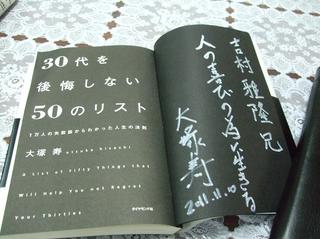 30代を
後悔しない
50のリスト
1万人の失敗談からわかった人生の法則
大塚 寿 otsuka hisashi
A List of Fifty Things that
Will Help You not Regret
Your Thirties
ダイヤモンド社
吉村雅隆兄
人の喜びの為に生きる
大塚寿
2011.11.10